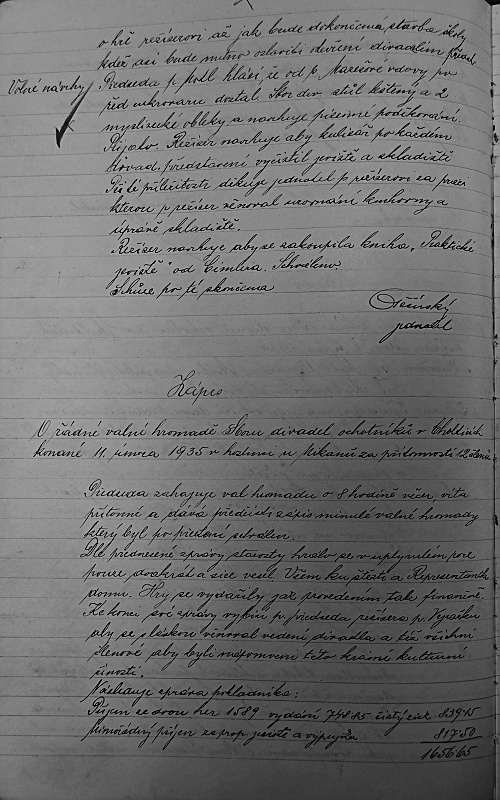 o hře režiserovi až jak bude dokončena stavba školy
kdež asi bude nutno oslaviti otevření divadelním před.
Volné návrhy
Předseda p. Motl hlásí, že od p. Marešové vdovy po
řed. cukrovaru dostal Sbor div. stůl kožený a 2
myslivecké obleky a navrhuje písemné poděkování.
Přijato. Režiser navrhuje aby kulisář po každém
divad. představení vyčistil jeviště a skladiště
Při té příležitosti děkuje jednatel p. režiserovi za práci
kterou p. režiser věnoval urovnání knihovny a
úpravě skladiště.
Režiser navrhuje aby se zakoupila kniha „Praktické
jeviště" od Cimlera. Schváleno.
Schůze po té skončena
Děčínský
jednatel
Zápis
O řádné valné hromadě Sboru divadel. ochotníků v Cholticích
konané 11. února 1935 v hostinci u Mikanů za přítomnosti 12 členů
Předseda zahajuje val. hromadu o 8 hodině večer, vítá
přítomné a dává předčísti zápis minulé valné hromady
který byl po přečtení schválen.
Dle přednesené zprávy starosty hrálo se v uplynulém roce
pouze dvakrát a sice vesel. Všem ku štěstí a Representantka
domu. Hry se vydařily jak provedením tak finančně.
Ke konci své zprávy vybízí p. předseda režisera p.
aby se s láskou věnoval vedení divadla a též všichni
členové aby byli nápomocni této krásné kulturní
činnosti.
Následuje zpráva pokladníka:
Příjem ze dvou her 1589 vydání 749.85 čistý zisk 839.15
Mimořádný příjem za prop. jeviště a výpůjčka 817.50
1656.65